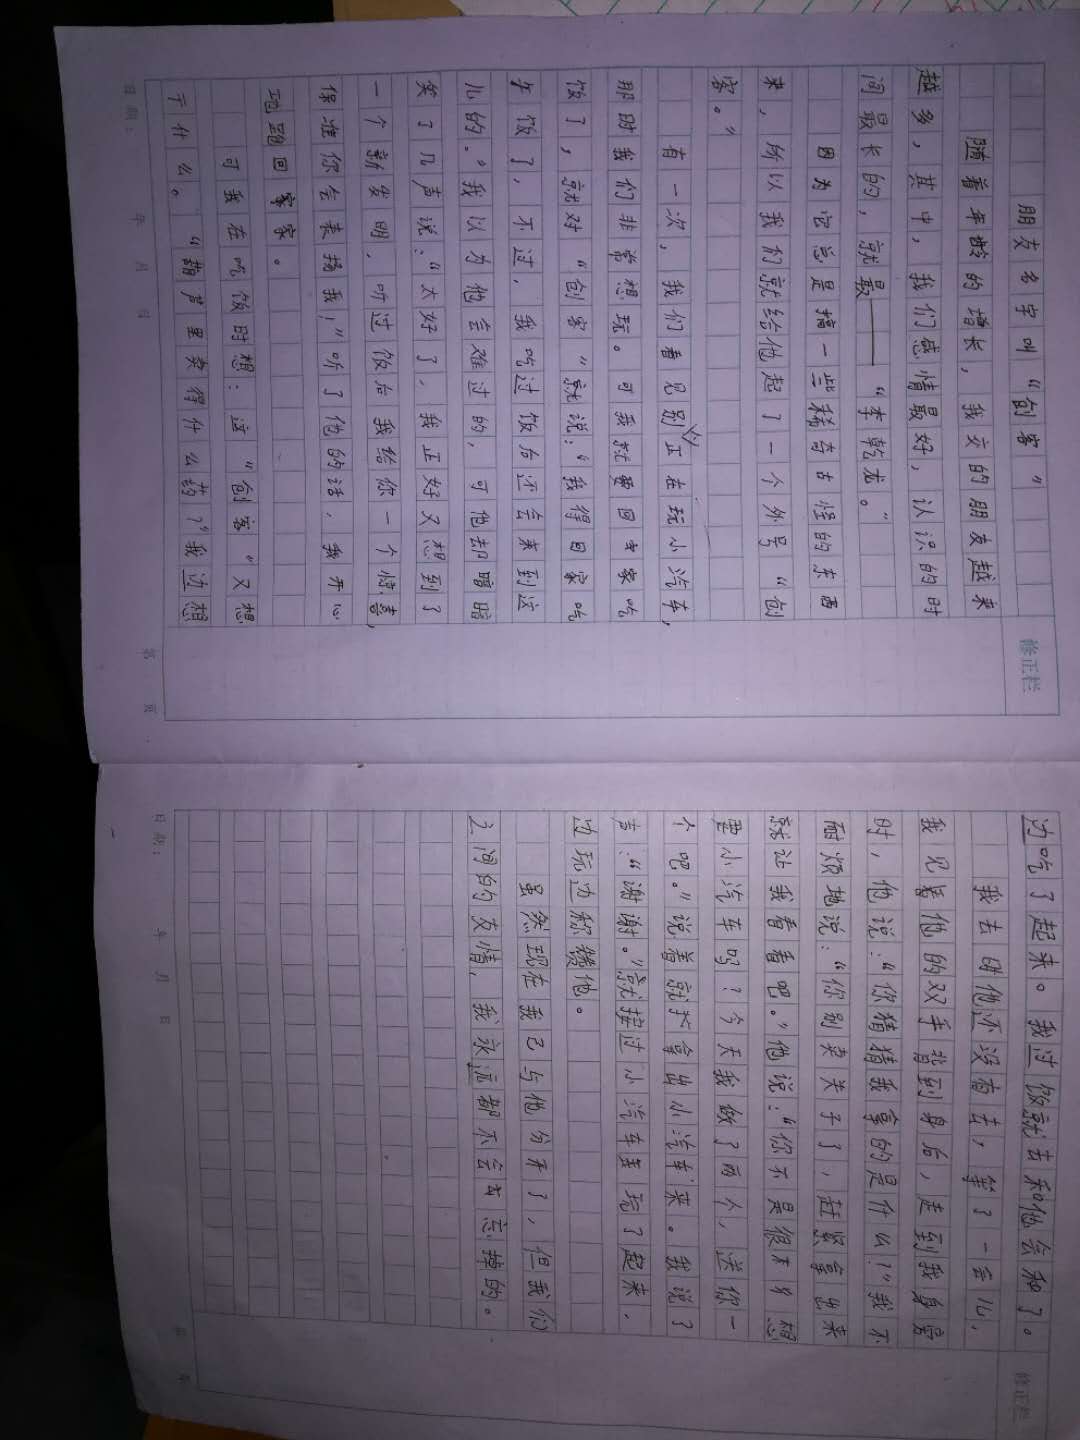 朋友名字叫“创客”
随着年龄的增长，我交的朋友越来
越多，其中，我们感情最好，认识的时
间最长的，就是——“李乾龙。”
因为它总是搞一些稀奇古怪的东西
来，所以我们就给他起了一个外号“创
客。”
有一次，我们看见别人正在玩小汽车，
那时我们非常想玩。可我就要回家吃
饭了，就对“创客”就说：“我得回家吃
午饭了，不过，我吃过饭后还会来到这
儿的。”我以为他会难过的，可他却暗暗
笑了几声说：“太好了，我正好又想到了
一个新发明，听过饭后我给你一个惊喜，
保准你会表扬我！”听了他的话，我开心
地跑回家。
可我在吃饭时想：这“创客”又想
干什么。“葫芦里卖得什么药？”我边想
边吃了起来。我过饭就去和他会和了。
我去时他还没有去，等了一会儿，
我见着他的双手背到身后，走到我身旁
时，他说：“你猜猜我拿的是什么？”我不
耐烦地说：“你别卖关子了，赶紧拿出来
就让我看看吧。”他说：“你不是很想
要小汽车吗？今天我做了两个，送你一
个吧。”说着就拿出小汽车来。我说了
声：“谢谢。”就接过小汽车玩了起来，
边玩边称赞他。
虽然现在我已与他分开了，但我们
之间的友情，我永远都不会忘掉的。
修正栏
日期：
年
月
日
第
页
修正栏
日期：
年
月
日